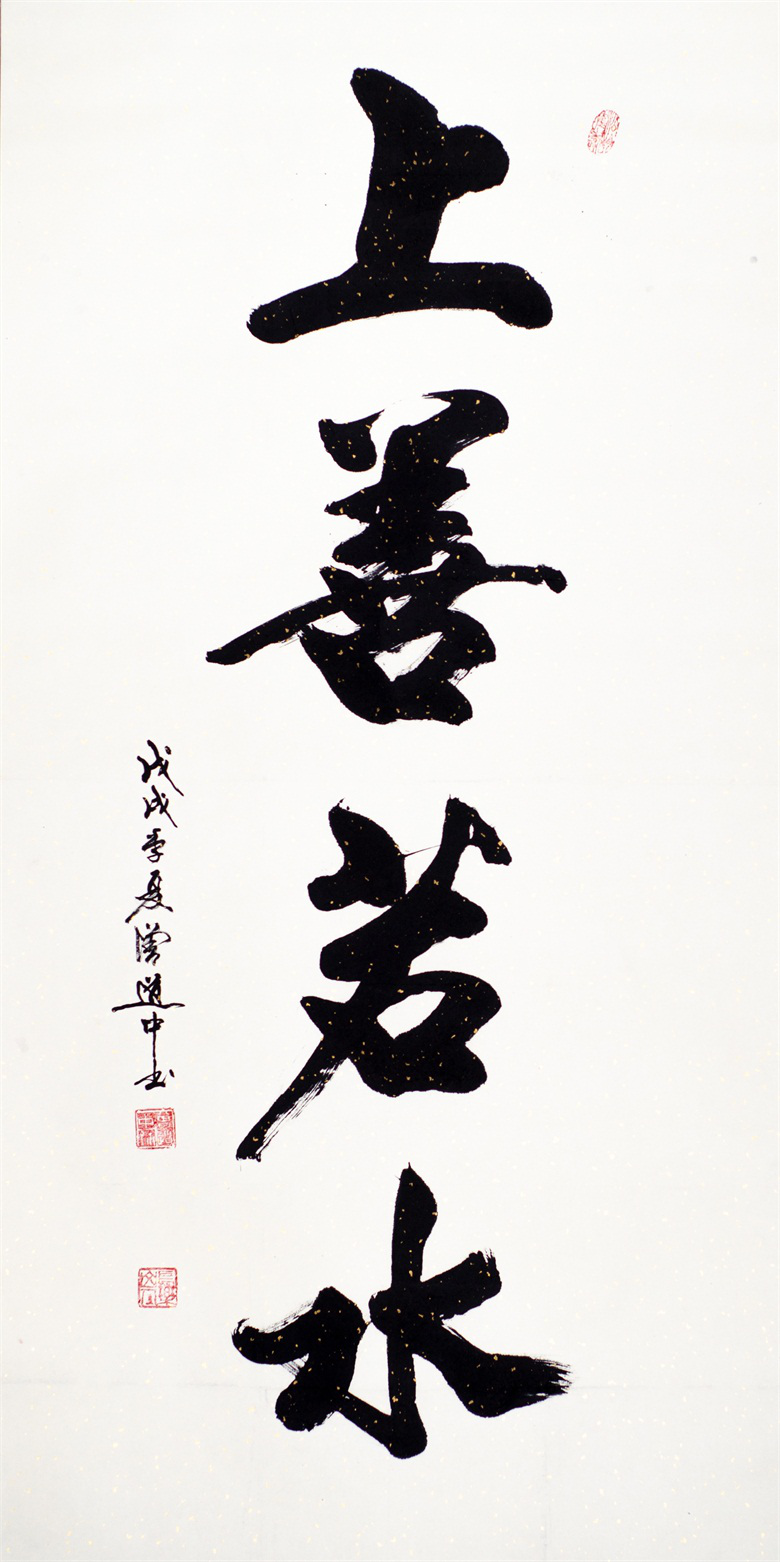 上善若水
戊戌季夏曾道中书